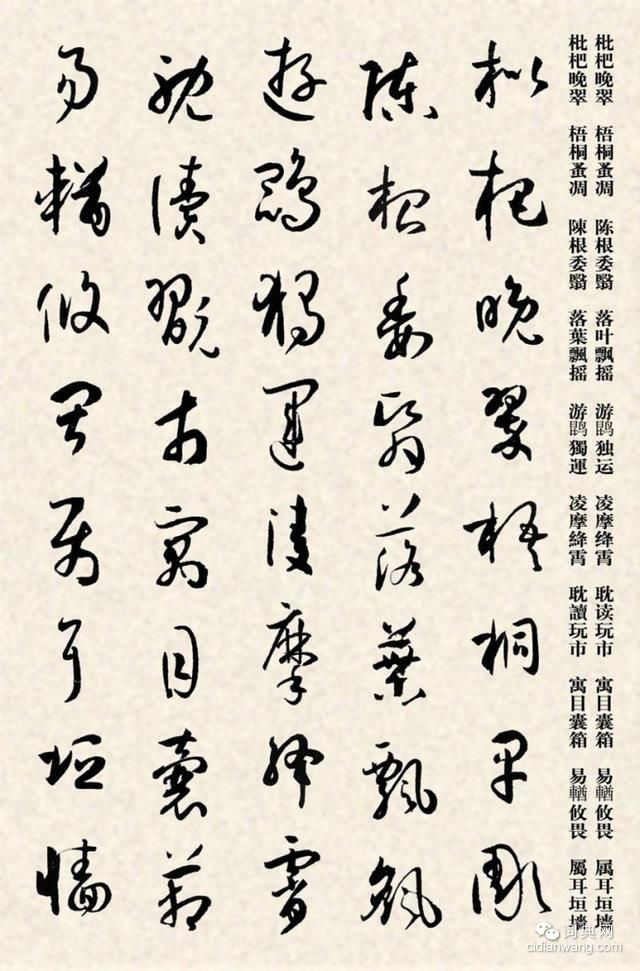 枇杷晚翠 梧桐蚤凋 陈根委翳 落叶飘摇 游鹍独运 凌摩绛霄 耽读玩市 寓目囊箱 易輶攸畏 属耳垣墙
枇杷晚翠 梧桐蚤凋 陳根委翳 落葉飄摇 游鵾獨運 凌摩絳霄 耽讀玩市 寓目囊箱 易輶攸畏 屬耳垣墙
枇杷晚翠梧桐早彫
陳根委翳落葉飄颻
遊鵾獨運凌摩絳霄
耽讀翫市寓目囊箱
易輶攸畏屬耳垣牆
词典网
cidianwang.com